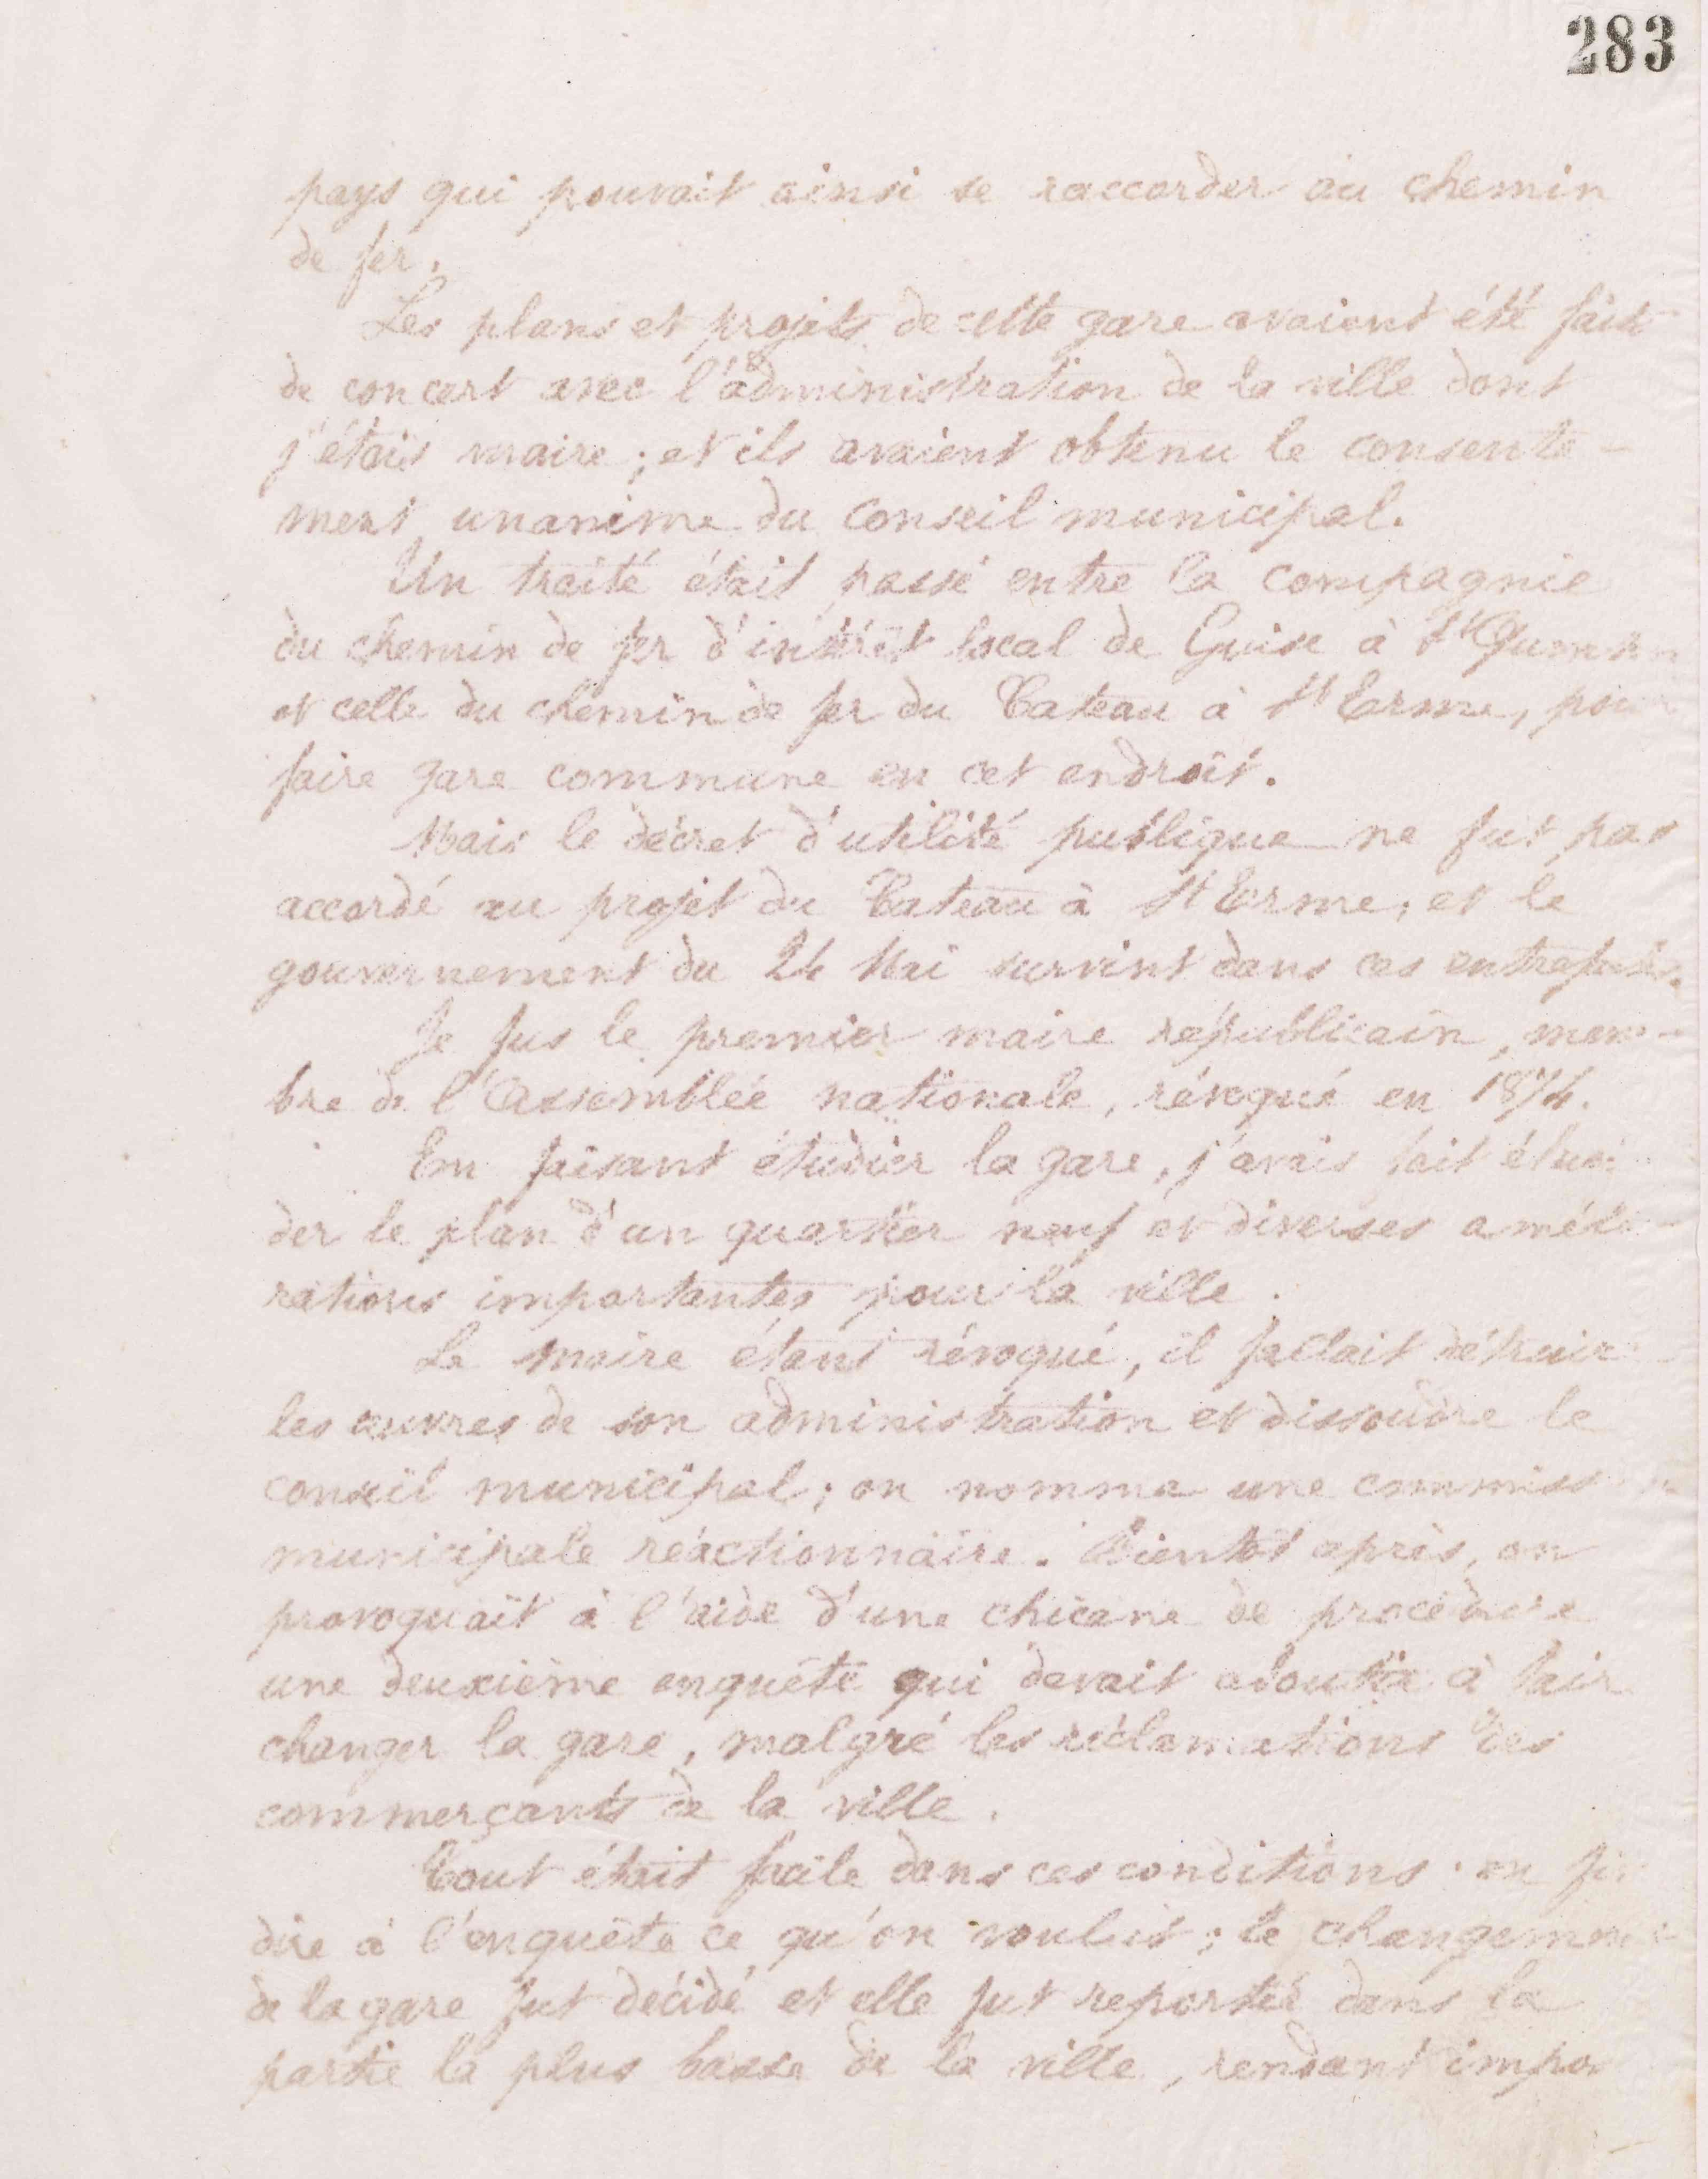 283
pays qui pouvait ainsi se raccorder au chemin
de fer.
Les plans et projets de cette gare avaient été faits
de concert avec l'administration de la ville dont
j'étais maire ; et ils avaient obtenu le consente-
ment unanime du conseil municipal.
Un traité était passé entre la compagnie
du chemin de fer d'intérêt local de Guise à St Quentin
et celle du chemin de fer du Cateau à St Erme, pour
faire gare commune en cet endroit.
Mais le décret d'utilité publique ne fut pas
accordé au projet du Cateau à St Erme, et le
gouvernement du 24 Mai survint dans ces entrefaits.
Je fus le premier maire républicain, mem-
bre de l'Assemblée nationale, révoqué en 1874.
En faisant étudier la gare, j'avais fait
der le plan d'un quartier neuf et diverses amélio-
rations importantes pour la ville.
Le maire étant révoqué, il fallait détruire
les œuvres de son administration et dissoudre le
conseil municipal ; on nomma une commission
municipale réactionnaire. Bientôt après, on
provoquait à l'aide d'une chicane de procédure
une deuxième enquête qui devait aboutir à faire
changer la gare, malgré les réclamations des
commerçants de la ville.
Tout était facile dans ces conditions : on fit
dire à l'enquête ce qu'on voulait ; le changement
de la gare fut décidé et elle fut reportée dans la
partie la plus basse de la ville, rendant impos